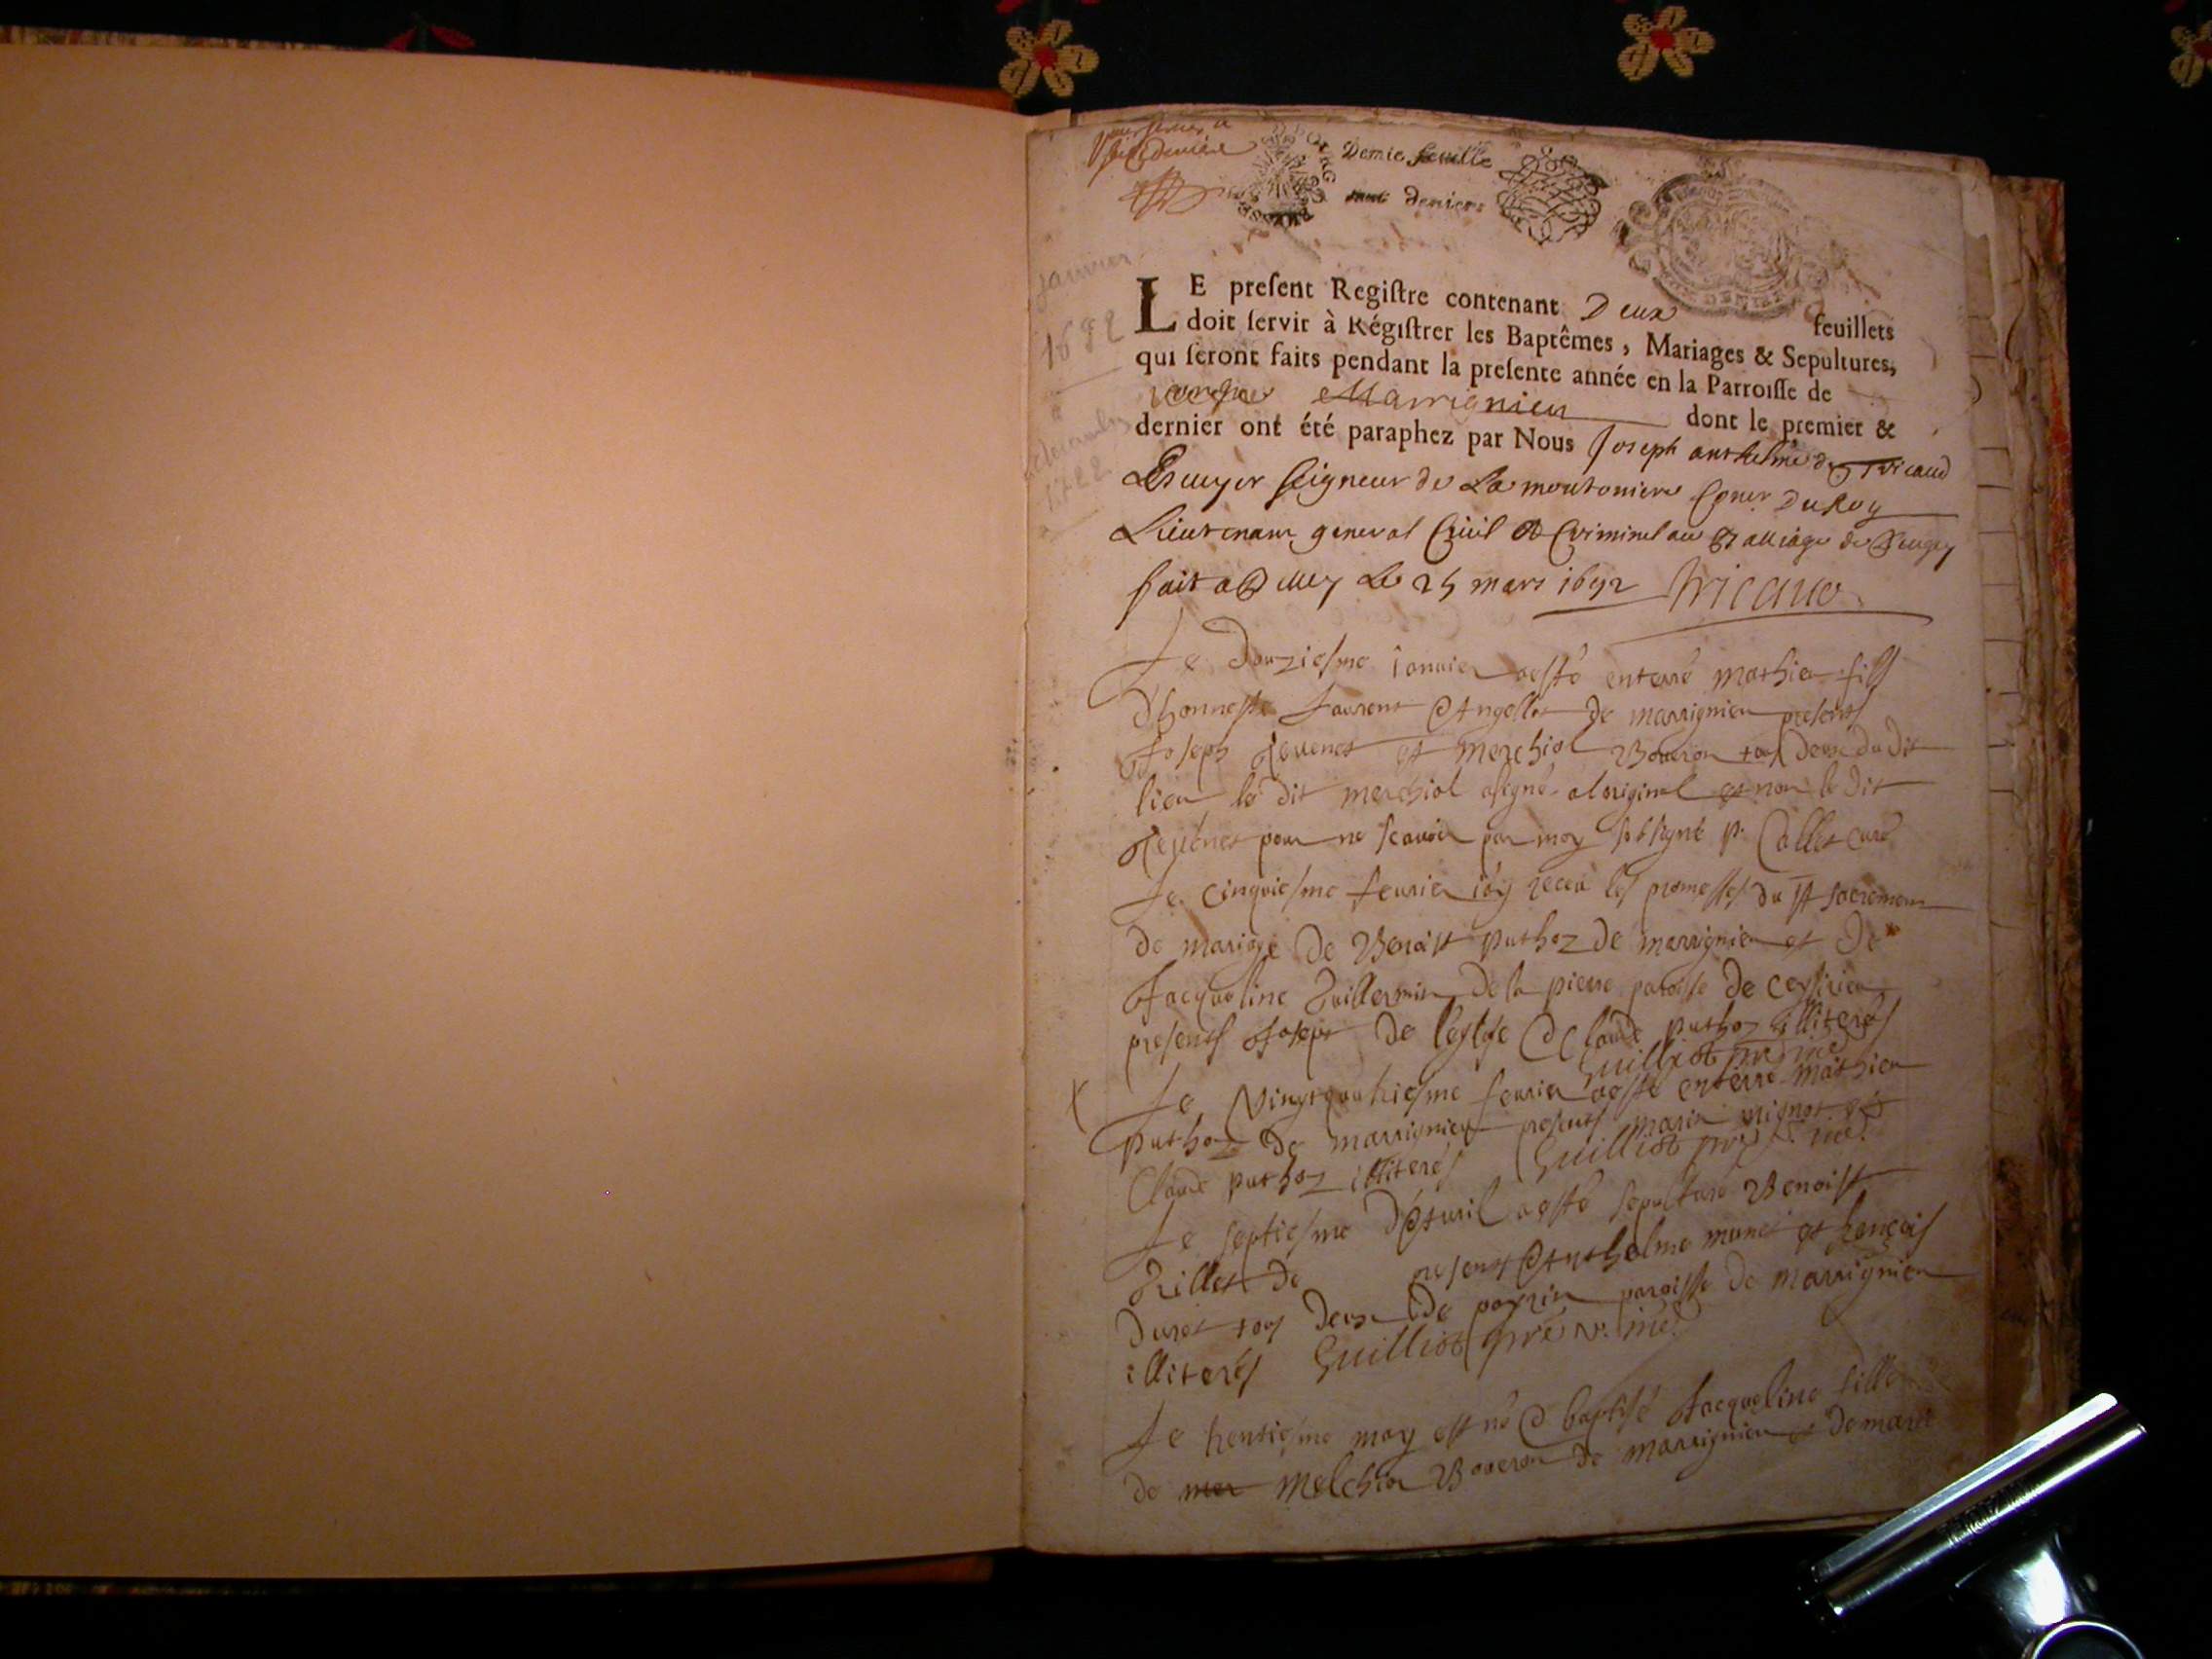 pour servir a
Demie feuille
deniers
Janvier
1692
LE present Registre contenant Deux feuillets
doit servir à Régistrer les Baptêmes, Mariages & Sepultures,
qui seront faits pendant la presente année en la Parroisse de
Marrignieu dont le premier &
dernier ont été paraphez par Nous Joseph anthelme de Tricaud
Escuyer seigneur de La moutoniere Coner Du Roy
Lieutenant general Civil & Criminel au Balliage de Beugey
fait a Belley Le 25 mars 1692 Tricaud
decembre
1722
Le Douziesme Janvier a esté enterré mathieu fils
d'honneste Laurent Angellot de marrignieu presents
Joseph Revenet et merchiol Boveron tous deux du dit
lieu le dit merchiol a signé a l'original et non le dit
Revenet pour ne scavoir par moy sobsigné p. Callet curé
Le Cinquiesme fevrier j'ay receu les promesses du st sacrement
de mariage De Benoist puthoz de marrignieu et De
Jacqueline Guillermin De la pierre paroisse De Ceyzirieu
presents Joseph De l'eglise & Claude puthoz illiterés
Guilliot pre vic.
Le Vingtquatriesme fevrier a esté enterré mathieu
puthoz De marrignieu presents marin mignot et
Claude puthoz illiterés Guilliot pre vic.
Le septiesme D'Avril a esté sepulturé Benoist
Trillet De presents Anthelme et françois
Duret tous Deux De poyrin paroisse De marrignieu
illiterés Guilliot pre vic.
Le trentiesme may est né & baptisé Jacqueline fille
De mer Melchior Boveron De marrignieu et De marie